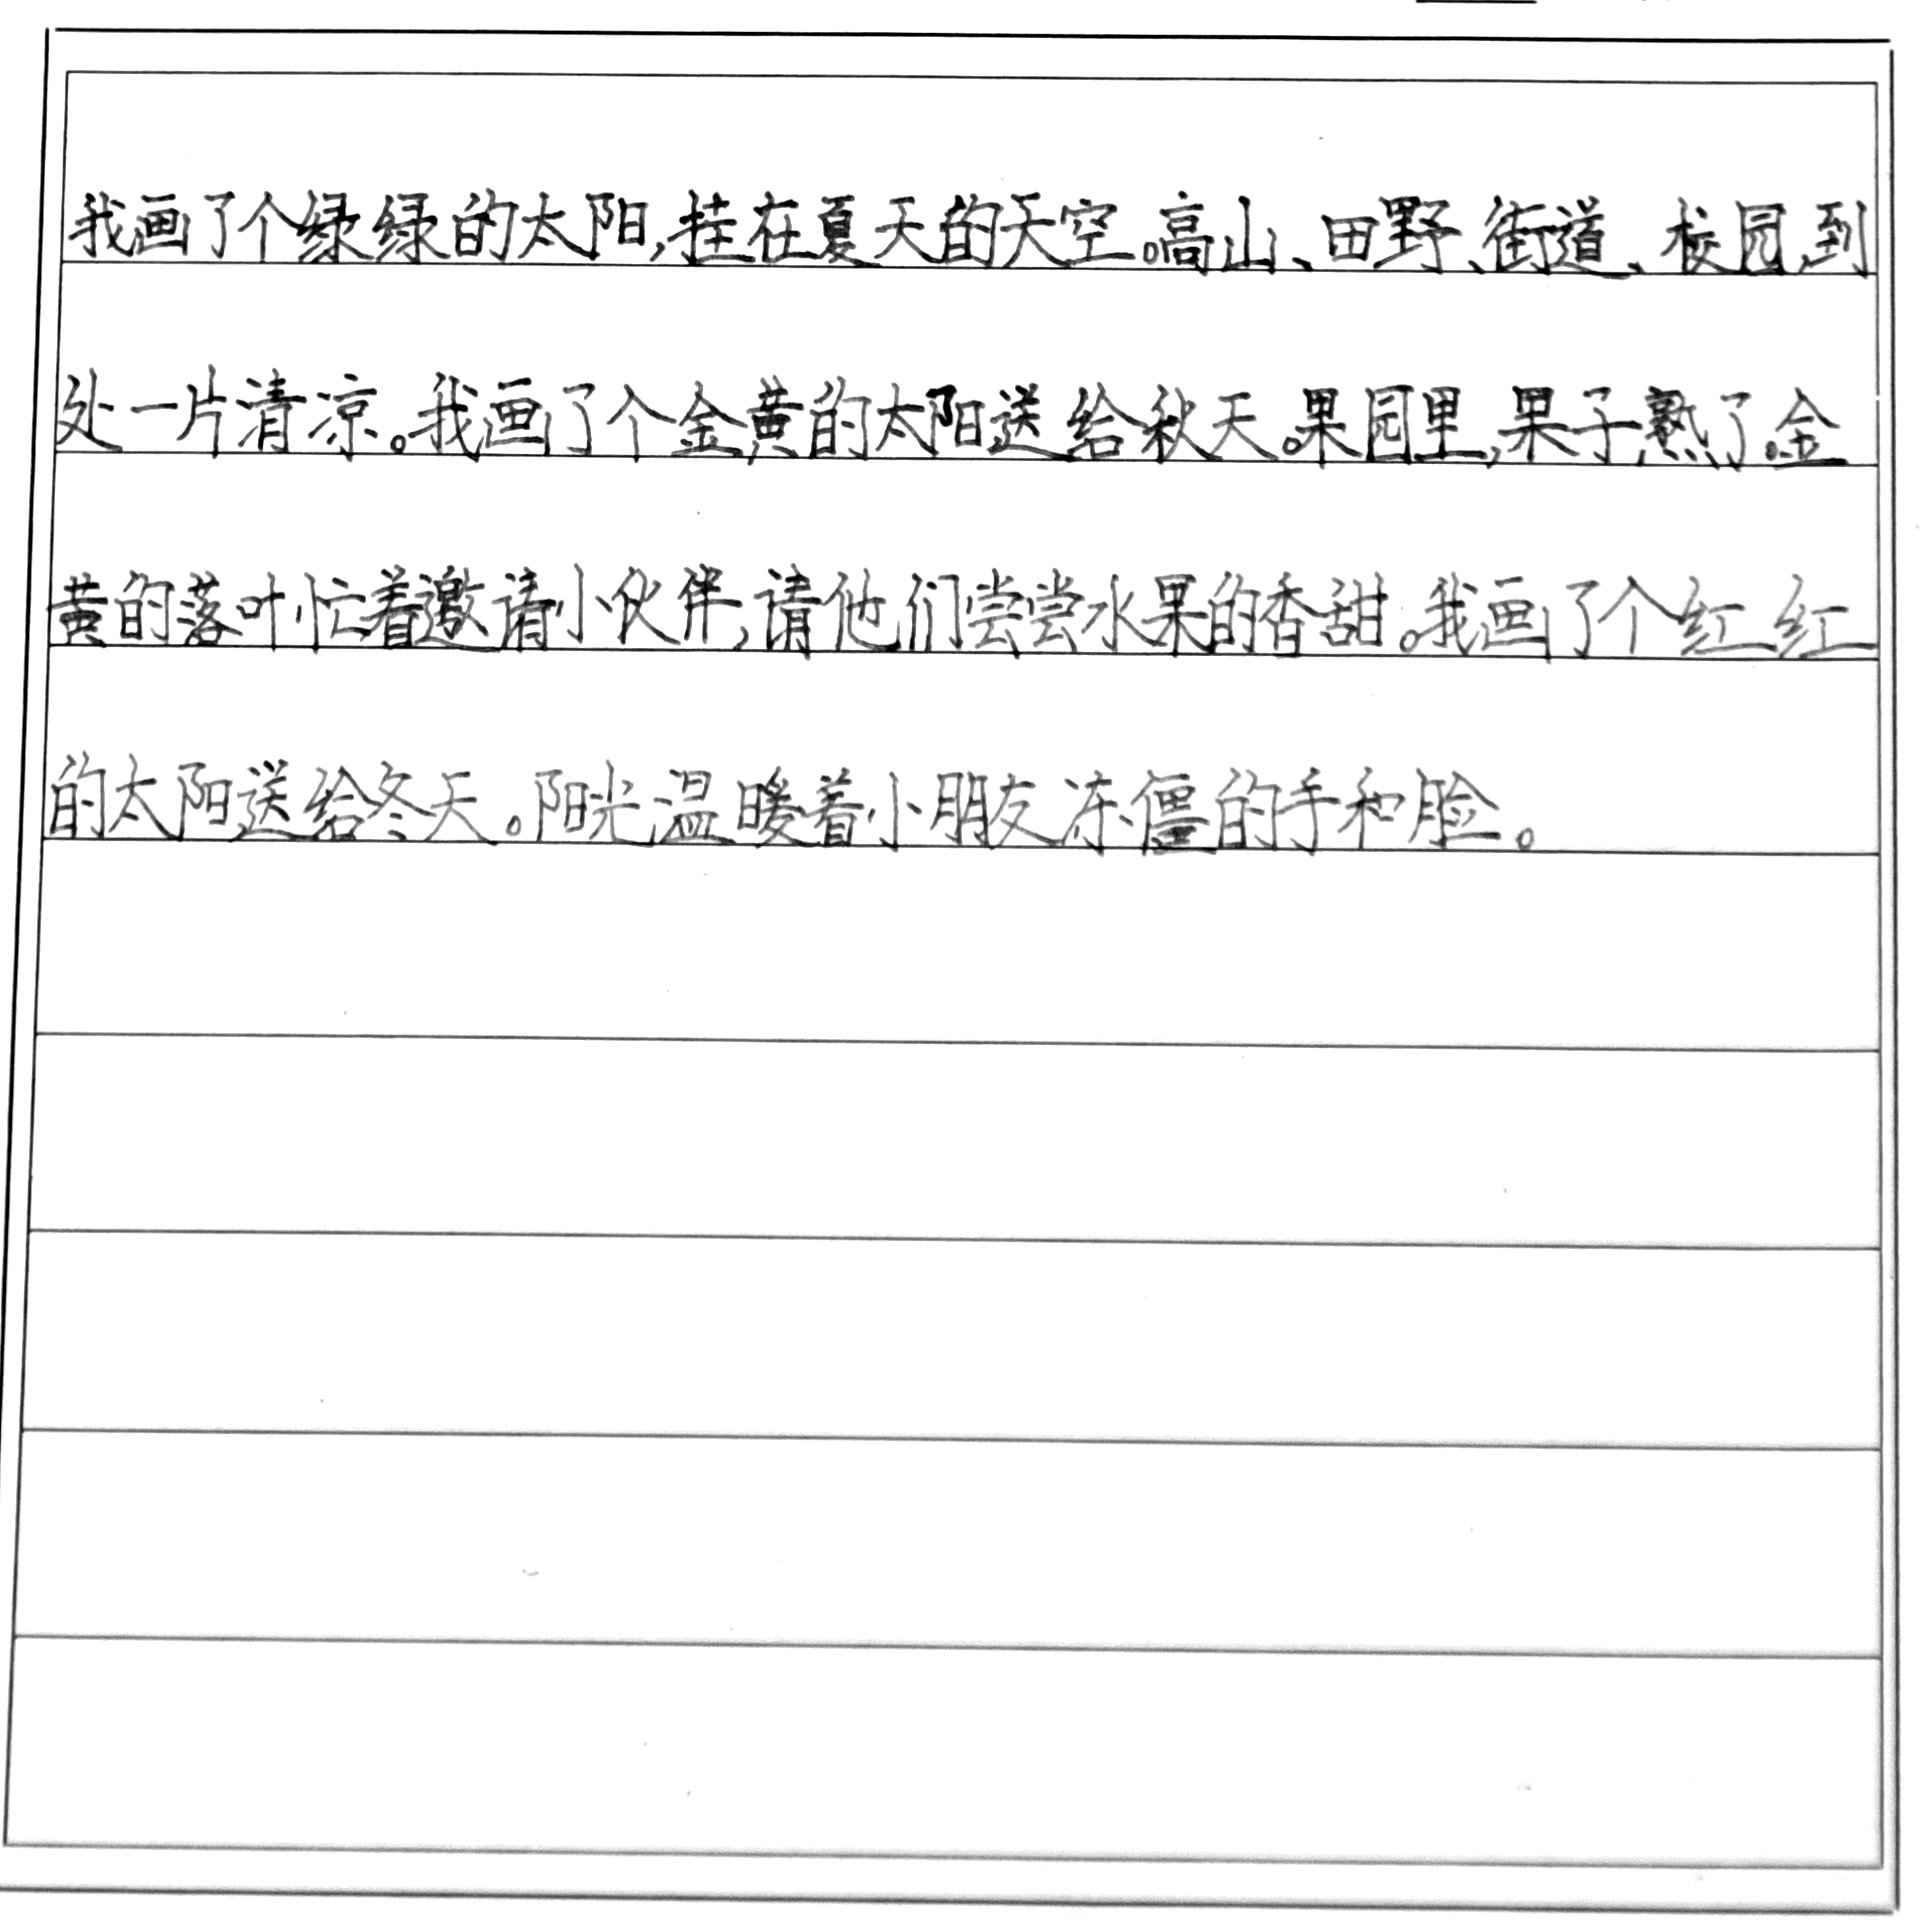 我画了个绿绿的太阳,挂在夏天的天空。高山、田野、街道、校园,到
处一片清凉。我画了个金黄的太阳送给秋天。果园里,果子熟了。金
黄的落叶忙着邀请小伙伴,请他们尝尝水果的香甜。我画了个红红
的太阳送给冬天。阳光温暖着小朋友冻僵的手和脸。